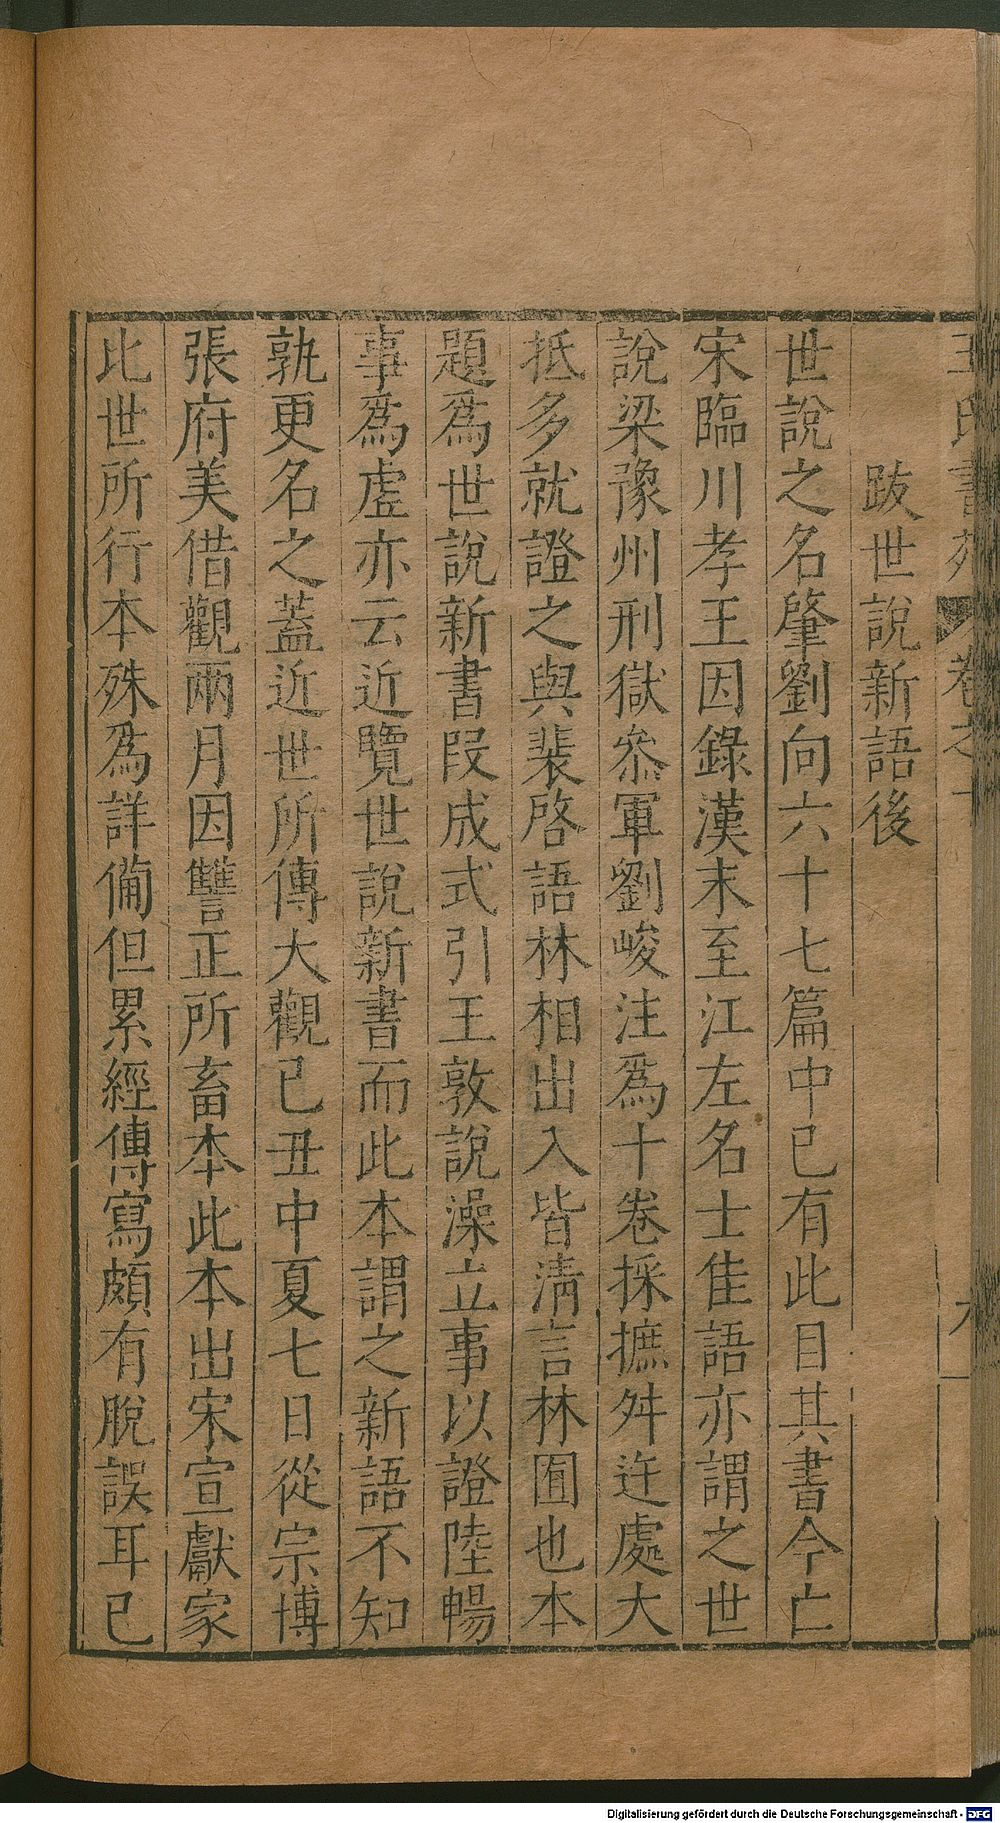 王氏書苑 卷之一 九
跋世說新語後
世說之名肇劉向六十七篇中已有此目其書今亡
宋臨川孝王因錄漢末至江左名士佳語亦謂之世
說梁豫州刑獄叅軍劉峻注爲十卷採摭舛迕處大
抵多就證之與裴啓語林相出入皆淸言林囿也本
題爲世說新書段成式引王敦說澡豆事以證陸暢
事爲虛亦云近覽世說新書而此本謂之新語不知
孰更名之蓋近世所傳大觀已丑中夏七日從宗博
張府美借觀兩月因讐正所畜本此本出宋宣獻家
比世所行本殊爲詳備但累經傳寫頗有脫誤耳已
Digitalisierung gefördert durch die Deutsche Forschungsgemeinschaft - DFG